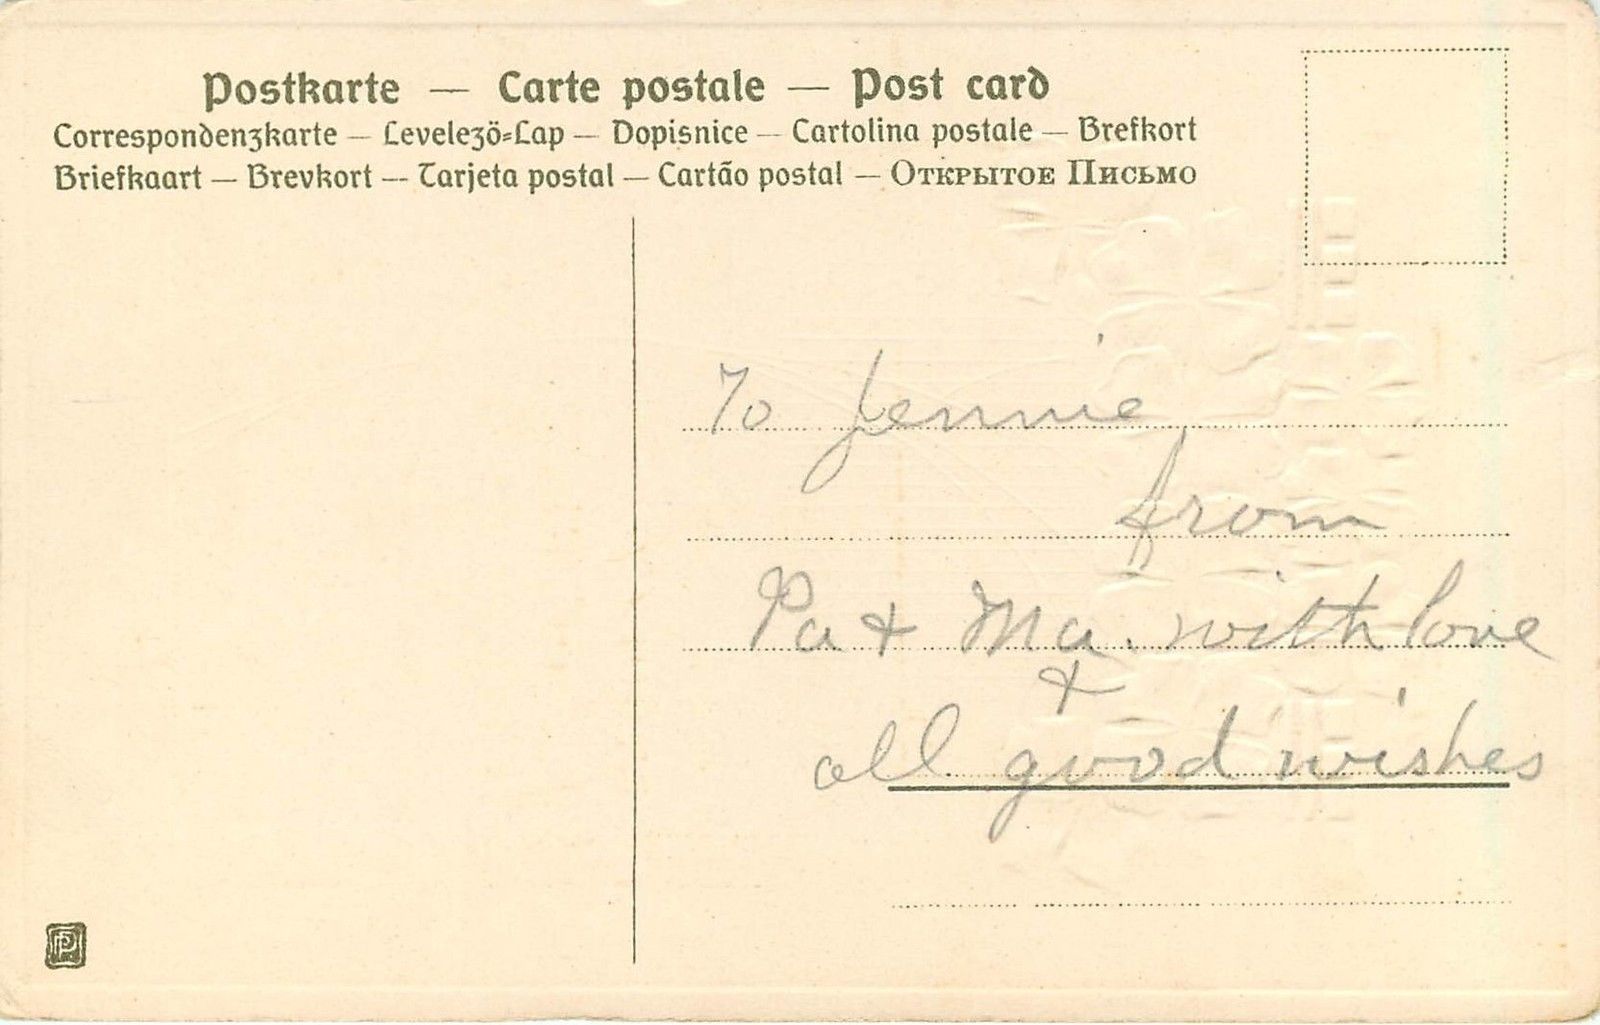 Postkarte — Carte postale — Post card
Correspondenzkarte — Levelező-Lap — Dopisnice — Cartolina postale — Brefkort
Briefkaart — Brevkort — Tarjeta postal — Cartão postal — Открытое Письмо
To Jennie
from
Pa & Ma. with love
&
all good wishes
PP